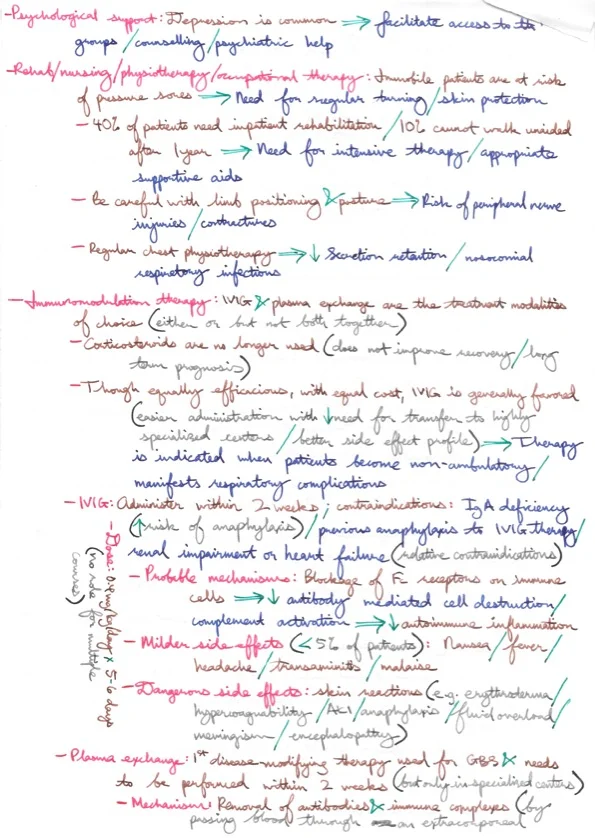 -Psychological support: Depression is common ⇒ facilitate access to
groups/counselling/psychiatric help
-Rehab/nursing/physiotherapy/occupational therapy: Immobile patients are at risk
of pressure sores → Need for regular turning/skin protection
- 40% of patients need inpatient rehabilitation/10% cannot walk unaided
after 1 year → Need for intensive therapy/appropriate
supportive aids
- Be careful with limb positioning & posture → Risk of peripheral nerve
injuries/contractures
- Regular chest physiotherapy → ↓ Secretion retention/nosocomial
respiratory infections
-Immunomodulation therapy: IVIG & plasma exchange are the treatment modalities
of choice (either or but not both together)
-Corticosteroids are no longer used (does not improve recovery/long
term prognosis)
-Though equally efficacious, with equal cost, IVIG is generally favored
(easier administration with ↓need for transfer to highly
specialized centers/better side effect profile) → Therapy
is indicated when patients become non-ambulatory/
manifests respiratory complications
-IVIG: Administer within 2 weeks; contraindications: IgA deficiency
(↑risk of anaphylaxis)/previous anaphylaxis to IVIG therapy/
renal impairment or heart failure (relative contraindications)
-Dose: /kg/day x 5-6 days
(no role for multiple
courses)
-Probable mechanisms: Blockage of Fc receptors on immune
cells → ↓ antibody mediated cell destruction/
complement activation → ↓ autoimmune inflammation
-Milder side effects (<5% of patients): Nausea/fever/
headache/transaminitis/malaise
-Dangerous side effects: skin reactions (e.g. erythroderma/
hypercoagulability/AKI/anaphylaxis/fluid overload/
meningism/encephalopathy)
-Plasma exchange: 1st disease modifying therapy used for GBS & needs
to be performed within 2 weeks (but only in specialized centers)
-Mechanism: Removal of antibodies & immune complexes (by
passing blood through an extracorporeal